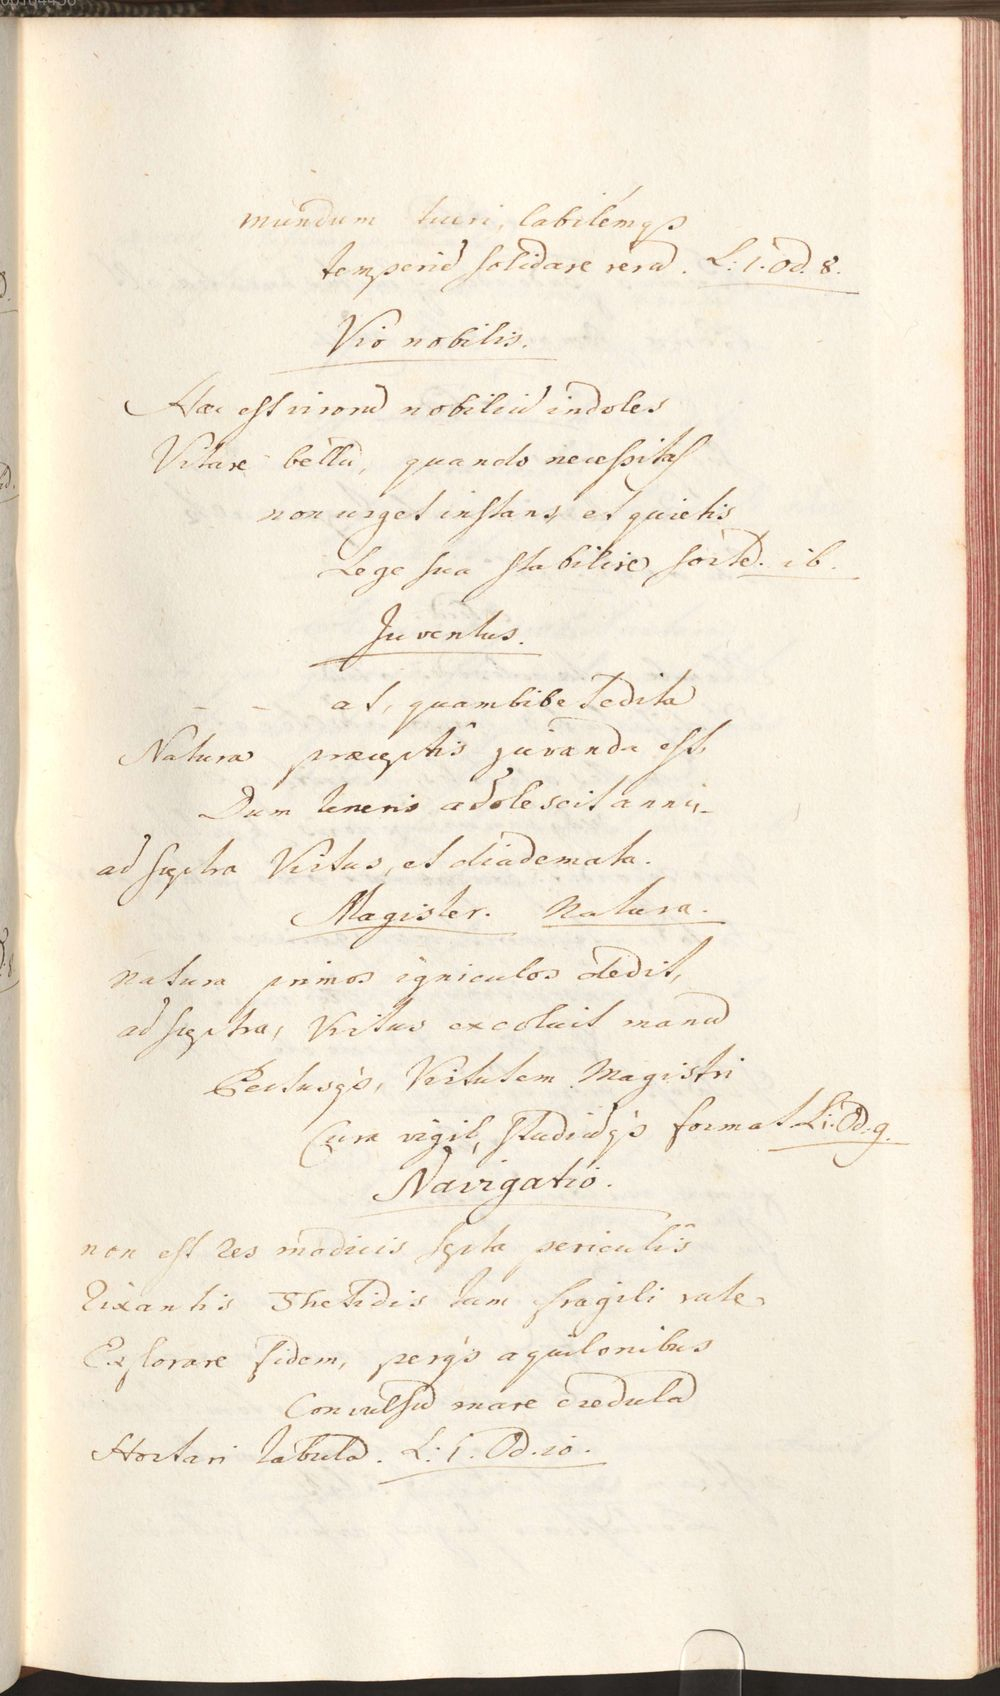 mundum tueri, labilémqȝ
temperiē solidare rerū. L: 1. Od. 8.
Vir nobilis.
Haec est virorū nobiliū indoles
Vitare bellū, quando necessitas
non urget instans, et quietis
Lege sua stabilire sortē. ib.
Juventus.
— — at, quam bibe
Natura praeceptis juvanda est,
Dum teneris adolescit annis
ad sceptra Virtus, et diademata.
Magister. Natura.
Natura primos igniculos dedit,
ad sceptra, Virtus excoluit manū
Pectusqȝ, Virtutem Magistri
Cura vigil, studiūqȝ format L: Od. 9.
Navigatio.
non est res modicis septa periculis
Rixantis Thetidis tum fragili rate
Explorare fidem, perqȝ aquilonibus
Convulsū mare credulā
Hortari tabulā. L: 1. Od. 10.